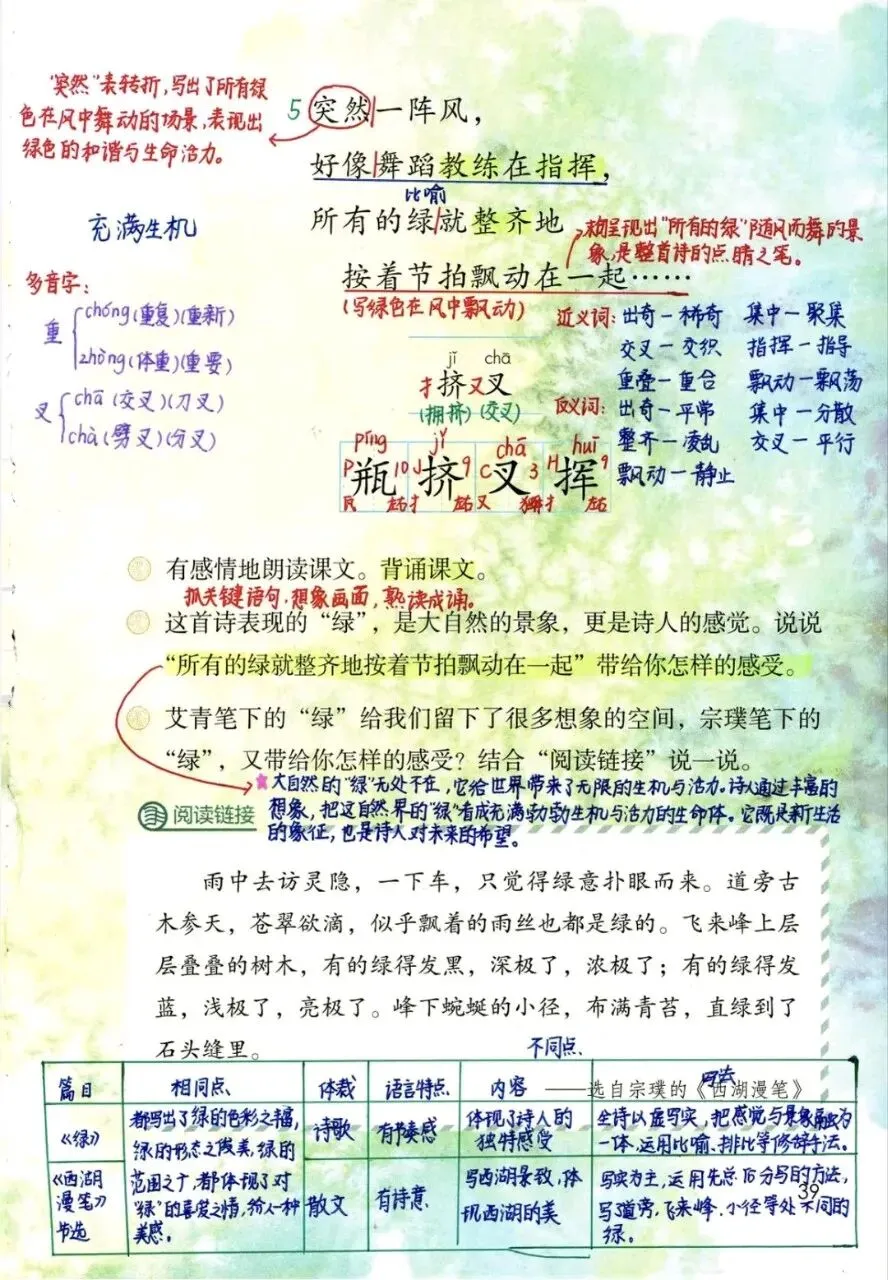 "突然"表转折,写出了所有绿
色在风中舞动的场景,表现出
绿色的和谐与生命活力。
5 突然一阵风，
好像舞蹈教练在指挥，
比喻
所有的绿就整齐地
按着节拍飘动在一起……
(写绿色在风中飘动)
充满生机
呈现出"所有的绿"随风而舞的景
象,是整首诗的点睛之笔。
多音字:
重
chóng(重复)(重新)
zhòng(体重)(重要)
叉
chā(交叉)(刀叉)
chà(劈叉)(分叉)
近义词: 出奇—稀奇 集中—聚集
交叉—交织 指挥—指导
重叠—重合 飘动—飘荡
反义词: 出奇—平常 集中—分散
整齐—凌乱 交叉—平行
飘动—静止
jǐ chā
扌挤 又叉
(拥挤)(交叉)
píng jǐ chā huī
P瓶10 J挤9 C叉3 H挥9
瓦 左右 扌 左右 又 独 扌 左右
有感情地朗读课文。背诵课文。
抓关键语句,想象画面,熟读成诵。
这首诗表现的“绿”，是大自然的景象，更是诗人的感觉。说说
“所有的绿就整齐地按着节拍飘动在一起”带给你怎样的感受。
艾青笔下的“绿”给我们留下了很多想象的空间，宗璞笔下的
“绿”，又带给你怎样的感受？结合“阅读链接”说一说。
大自然的"绿"无处不在,它给世界带来了无限的生机与活力。诗人通过丰富的
想象,把这自然界的"绿"看成充满勃勃生机与活力的生命体。它既是新生活
的象征,也是诗人对未来的希望。
阅读链接
雨中去访灵隐，一下车，只觉得绿意扑眼而来。道旁古
木参天，苍翠欲滴，似乎飘着的雨丝也都是绿的。飞来峰上层
层叠叠的树木，有的绿得发黑，深极了，浓极了；有的绿得发
蓝，浅极了，亮极了。峰下蜿蜒的小径，布满青苔，直绿到了
石头缝里。
——选自宗璞的《西湖漫笔》
不同点
篇目 相同点 体裁 语言特点 内容 写法
《绿》
都写出了绿的色彩之丰富,
绿的形态之优美,绿的
范围之广,都体现了对
"绿"的喜爱之情,给人一种
美感。
诗歌
有节奏感
体现了诗人的
独特感受
全诗以虚写实,把感觉与景象融为
一体,运用比喻、排比等修辞手法。
《西湖
漫笔》
节选
散文
有诗意
写西湖景致,体
现西湖的美
写实为主,运用先总后分写的方法,
写了道旁,飞来峰、小径等处不同的
绿。
39